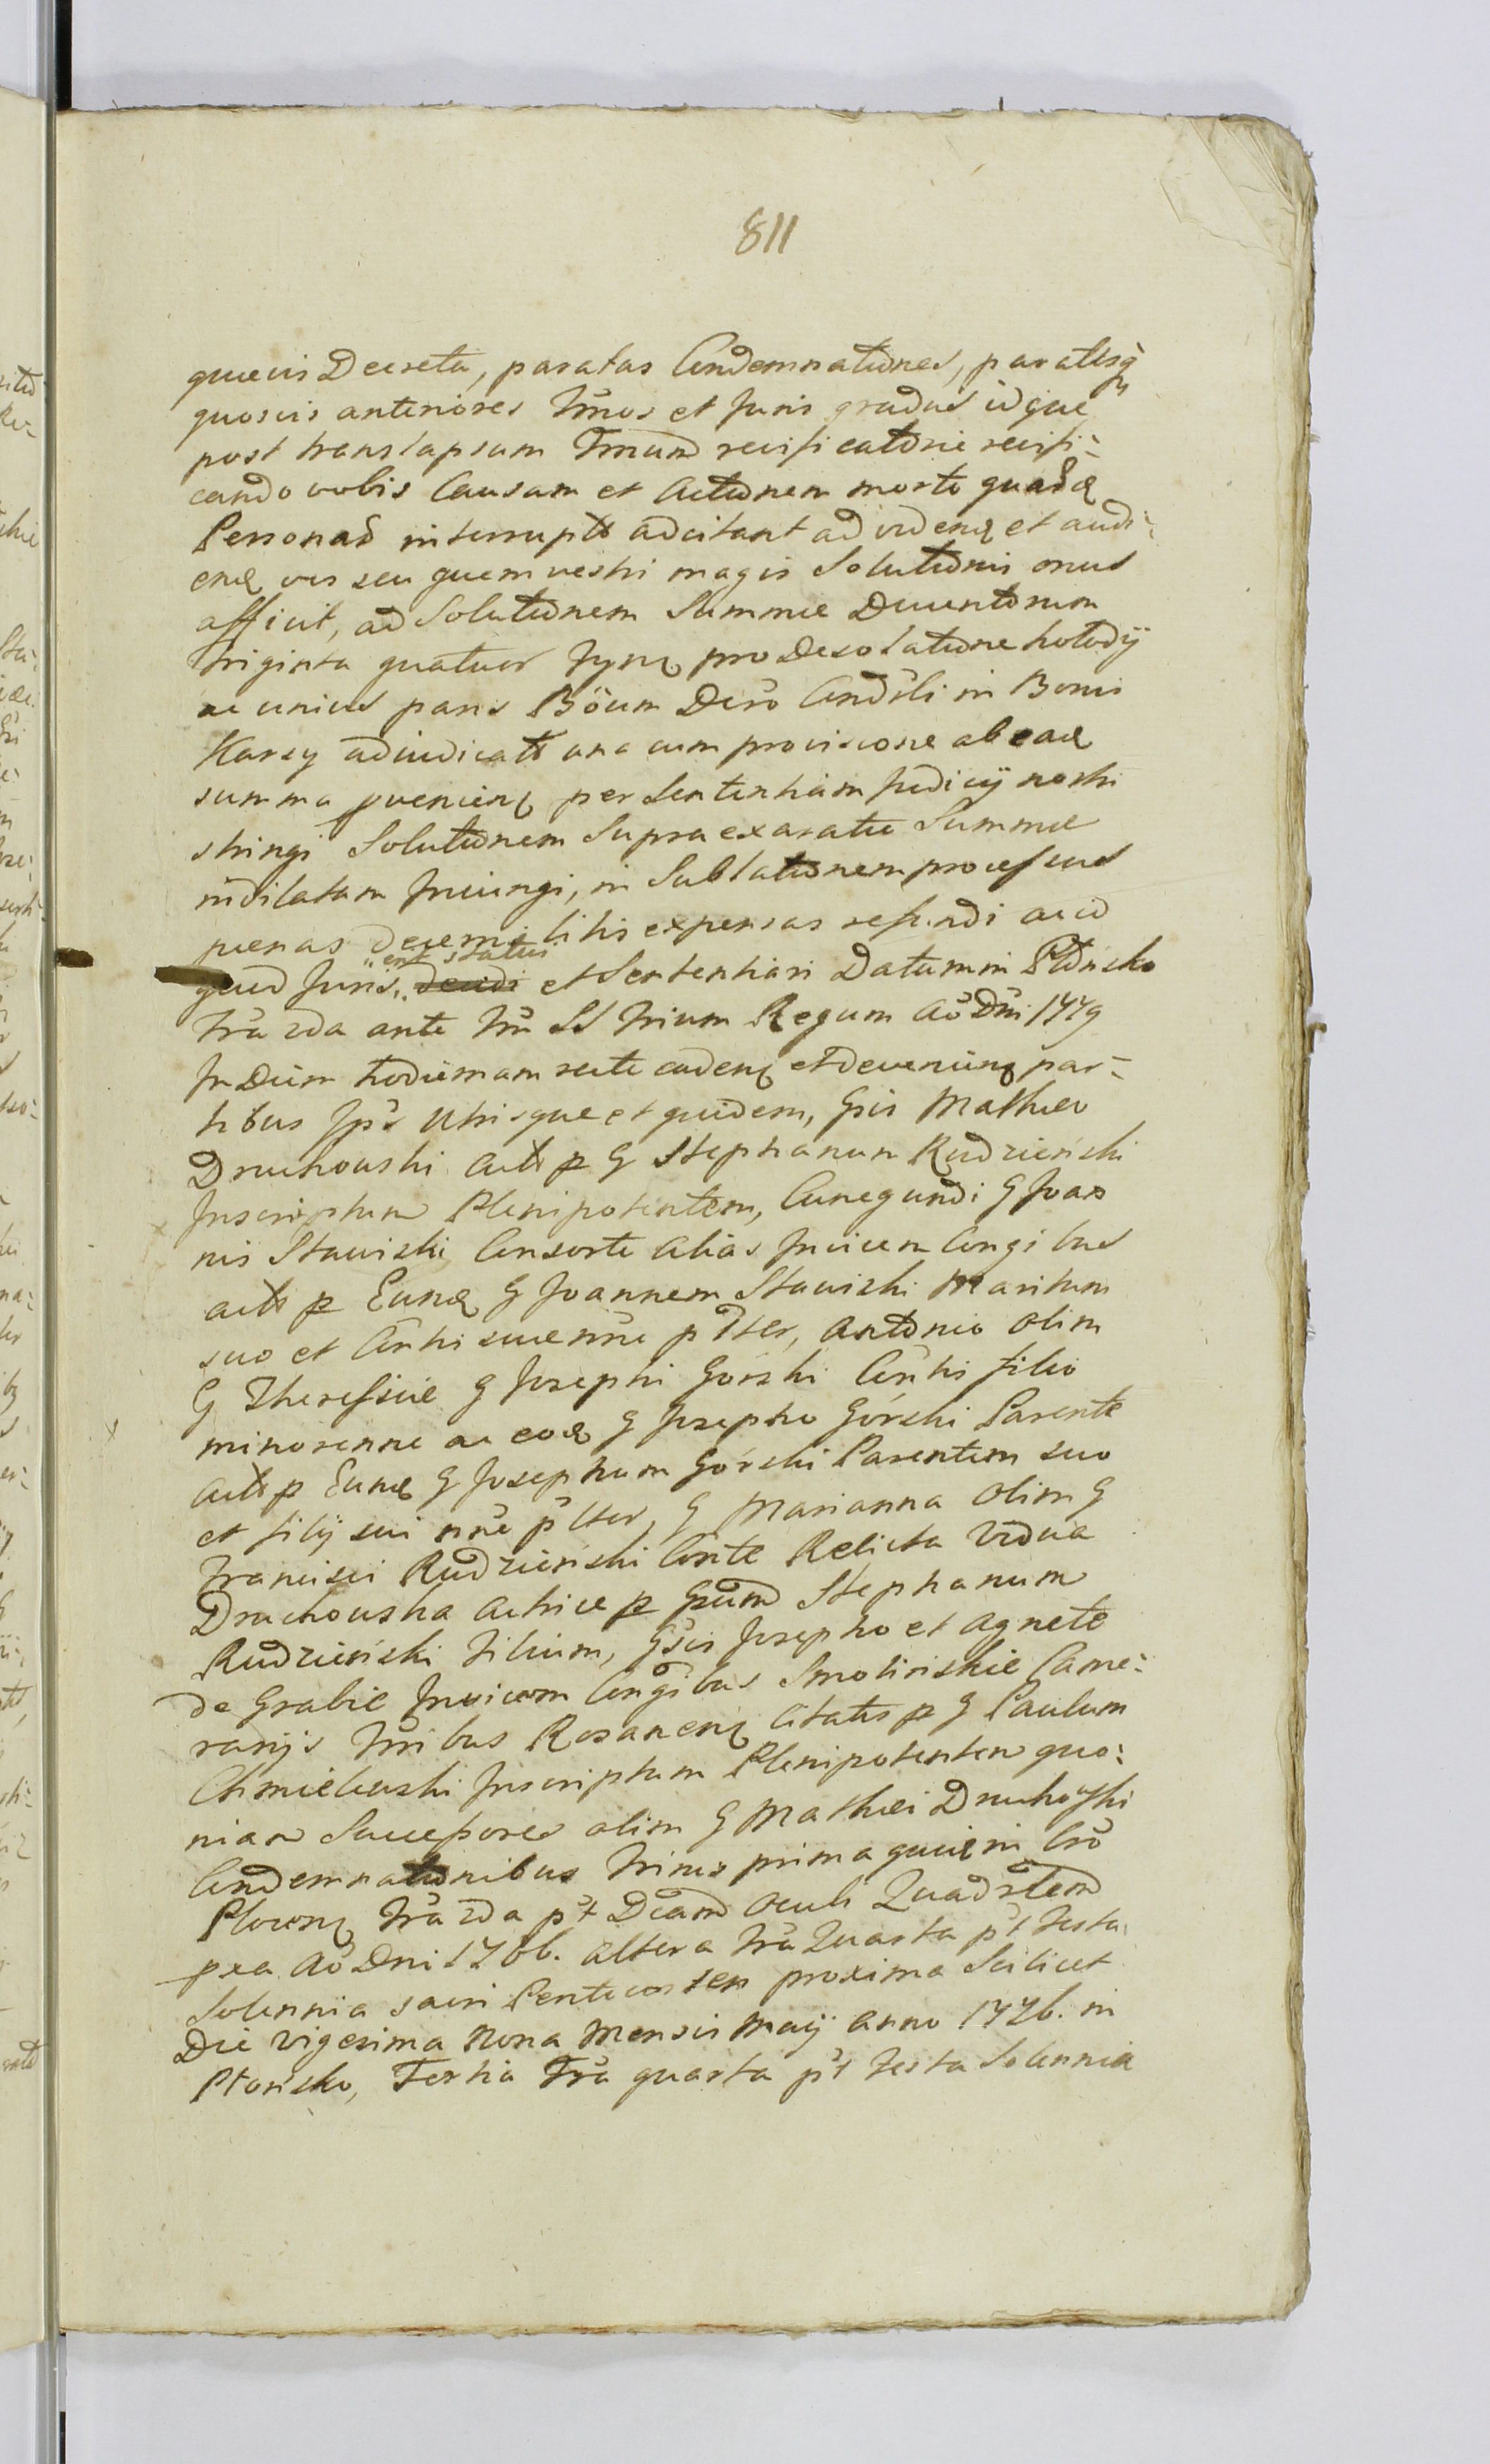 811
quævis Decreta, paratas Condemnationes, paratisq̀
quosvis anteriores Tm̃os et Juris gradus idque
post translapsum Tmum reassi
cando vobis Causam et Actionem morte quarũ
Personas interrupt adcitant ad videnḍ et audi:
enḍ vos seu quem vestri magis Solutionis onus
afficit, ad Solutionem Summæ Ducentorum
triginta quatuor pro Desolatione
ac unius paris Böum Drõ in Bonis
Karsy adiudicatæ una cum provisione ab ead
summa pvenien per Sententiam Judicij nostri
stringi Solutionem Supra exaratæ Summæ
indilatam Injungi, in Sublationem processus
pœnas decerni litis expensas refundi ac id
„erit statui
quid Juris „ decidi et Sententiari Datum in Płońsko
fr̃a 2da ante fm̃ SS Trium Regum Aõ Dñi 1779
In Diem hodiernam recte caden et devenien par:
tibus Ip̃s Utrisque et quidem, Gsis Mathæo
Druchowski Act p G Stephanum Rudzieński
Inscriptum Plenipotentem, Cunegundi G Joan
nis Stawiski Consorte alias Invicem Congibus
act p Eund G Joannem Stawiski Maritum
suo et Conthi suæ nñe p lter, Antonio olim
G Theressiæ G Josephi Gorski Conthi filio
minorenne ac eod G Josepho Górski Parente
Act p Eund G Josephum Górski Parentem suo
et filij sui nñe p̃ lter, G Marianna olim G
Francisci Rudzieński Conte Relicta Vidua
Druchowska Actrice p Gsum Stephanum
Rudzieński Filium, Gsis Josepho et Agnete
de Grabie Invicem Congibus Smolińskie Came:
rarijs Tr̃ibus Rozanen Citatis p G Paulum
Chmielewski Inscriptum Plenipotentem quo:
niam Successores olim G Mathæi Druchoẏski
Condemnationibus Trinis prima quid in Crõ
Plocen fr̃a 2da p̃t Dcam Oculi Quadrlem
pxa Aõ Dni 1766. altera fr̃a Quarta p̃t Festa
Solennia sacri Pentecosten proxima Scilicet
Die vigesima Nona Mensis Maij anno 1776. in
Płońsko, Tertia Fr̃a quarta p̃t Festa Solennia